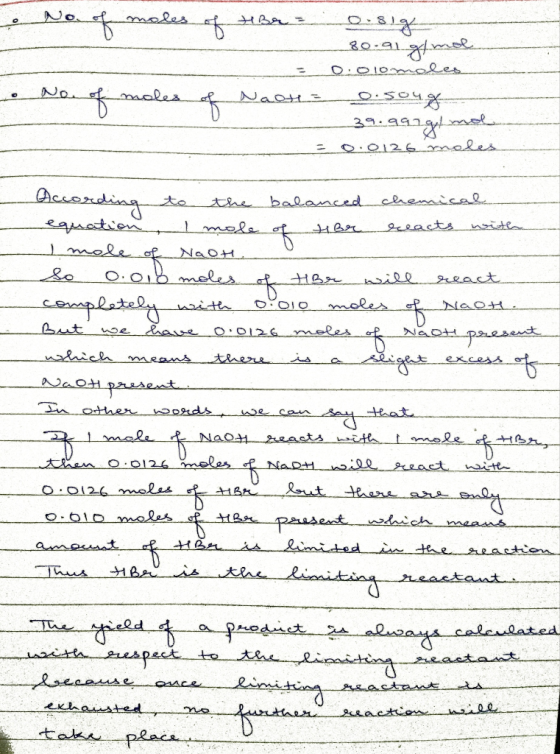 • No. of moles of HBr = 0.81g
80.91 g/mol
= 0.010moles
• No. of moles of NaOH = 0.504g
39.997g/mol
= 0.0126 moles
According to the balanced chemical
equation, 1 mole of HBr reacts with
1 mole of NaOH.
So 0.010 moles of HBr will react
completely with 0.010 moles of NaOH.
But we have 0.0126 moles of NaOH present
which means there is a slight excess of
NaOH present.
In other words, we can say that
If 1 mole of NaOH reacts with 1 mole of HBr,
then 0.0126 moles of NaOH will react with
0.0126 moles of HBr but there are only
0.010 moles of HBr present which means
amount of HBr is limited in the reaction
Thus HBr is the limiting reactant.
The yield of a product is always calculated
with respect to the limiting reactant
because once limiting reactant is
exhausted, no further reaction will
take place.